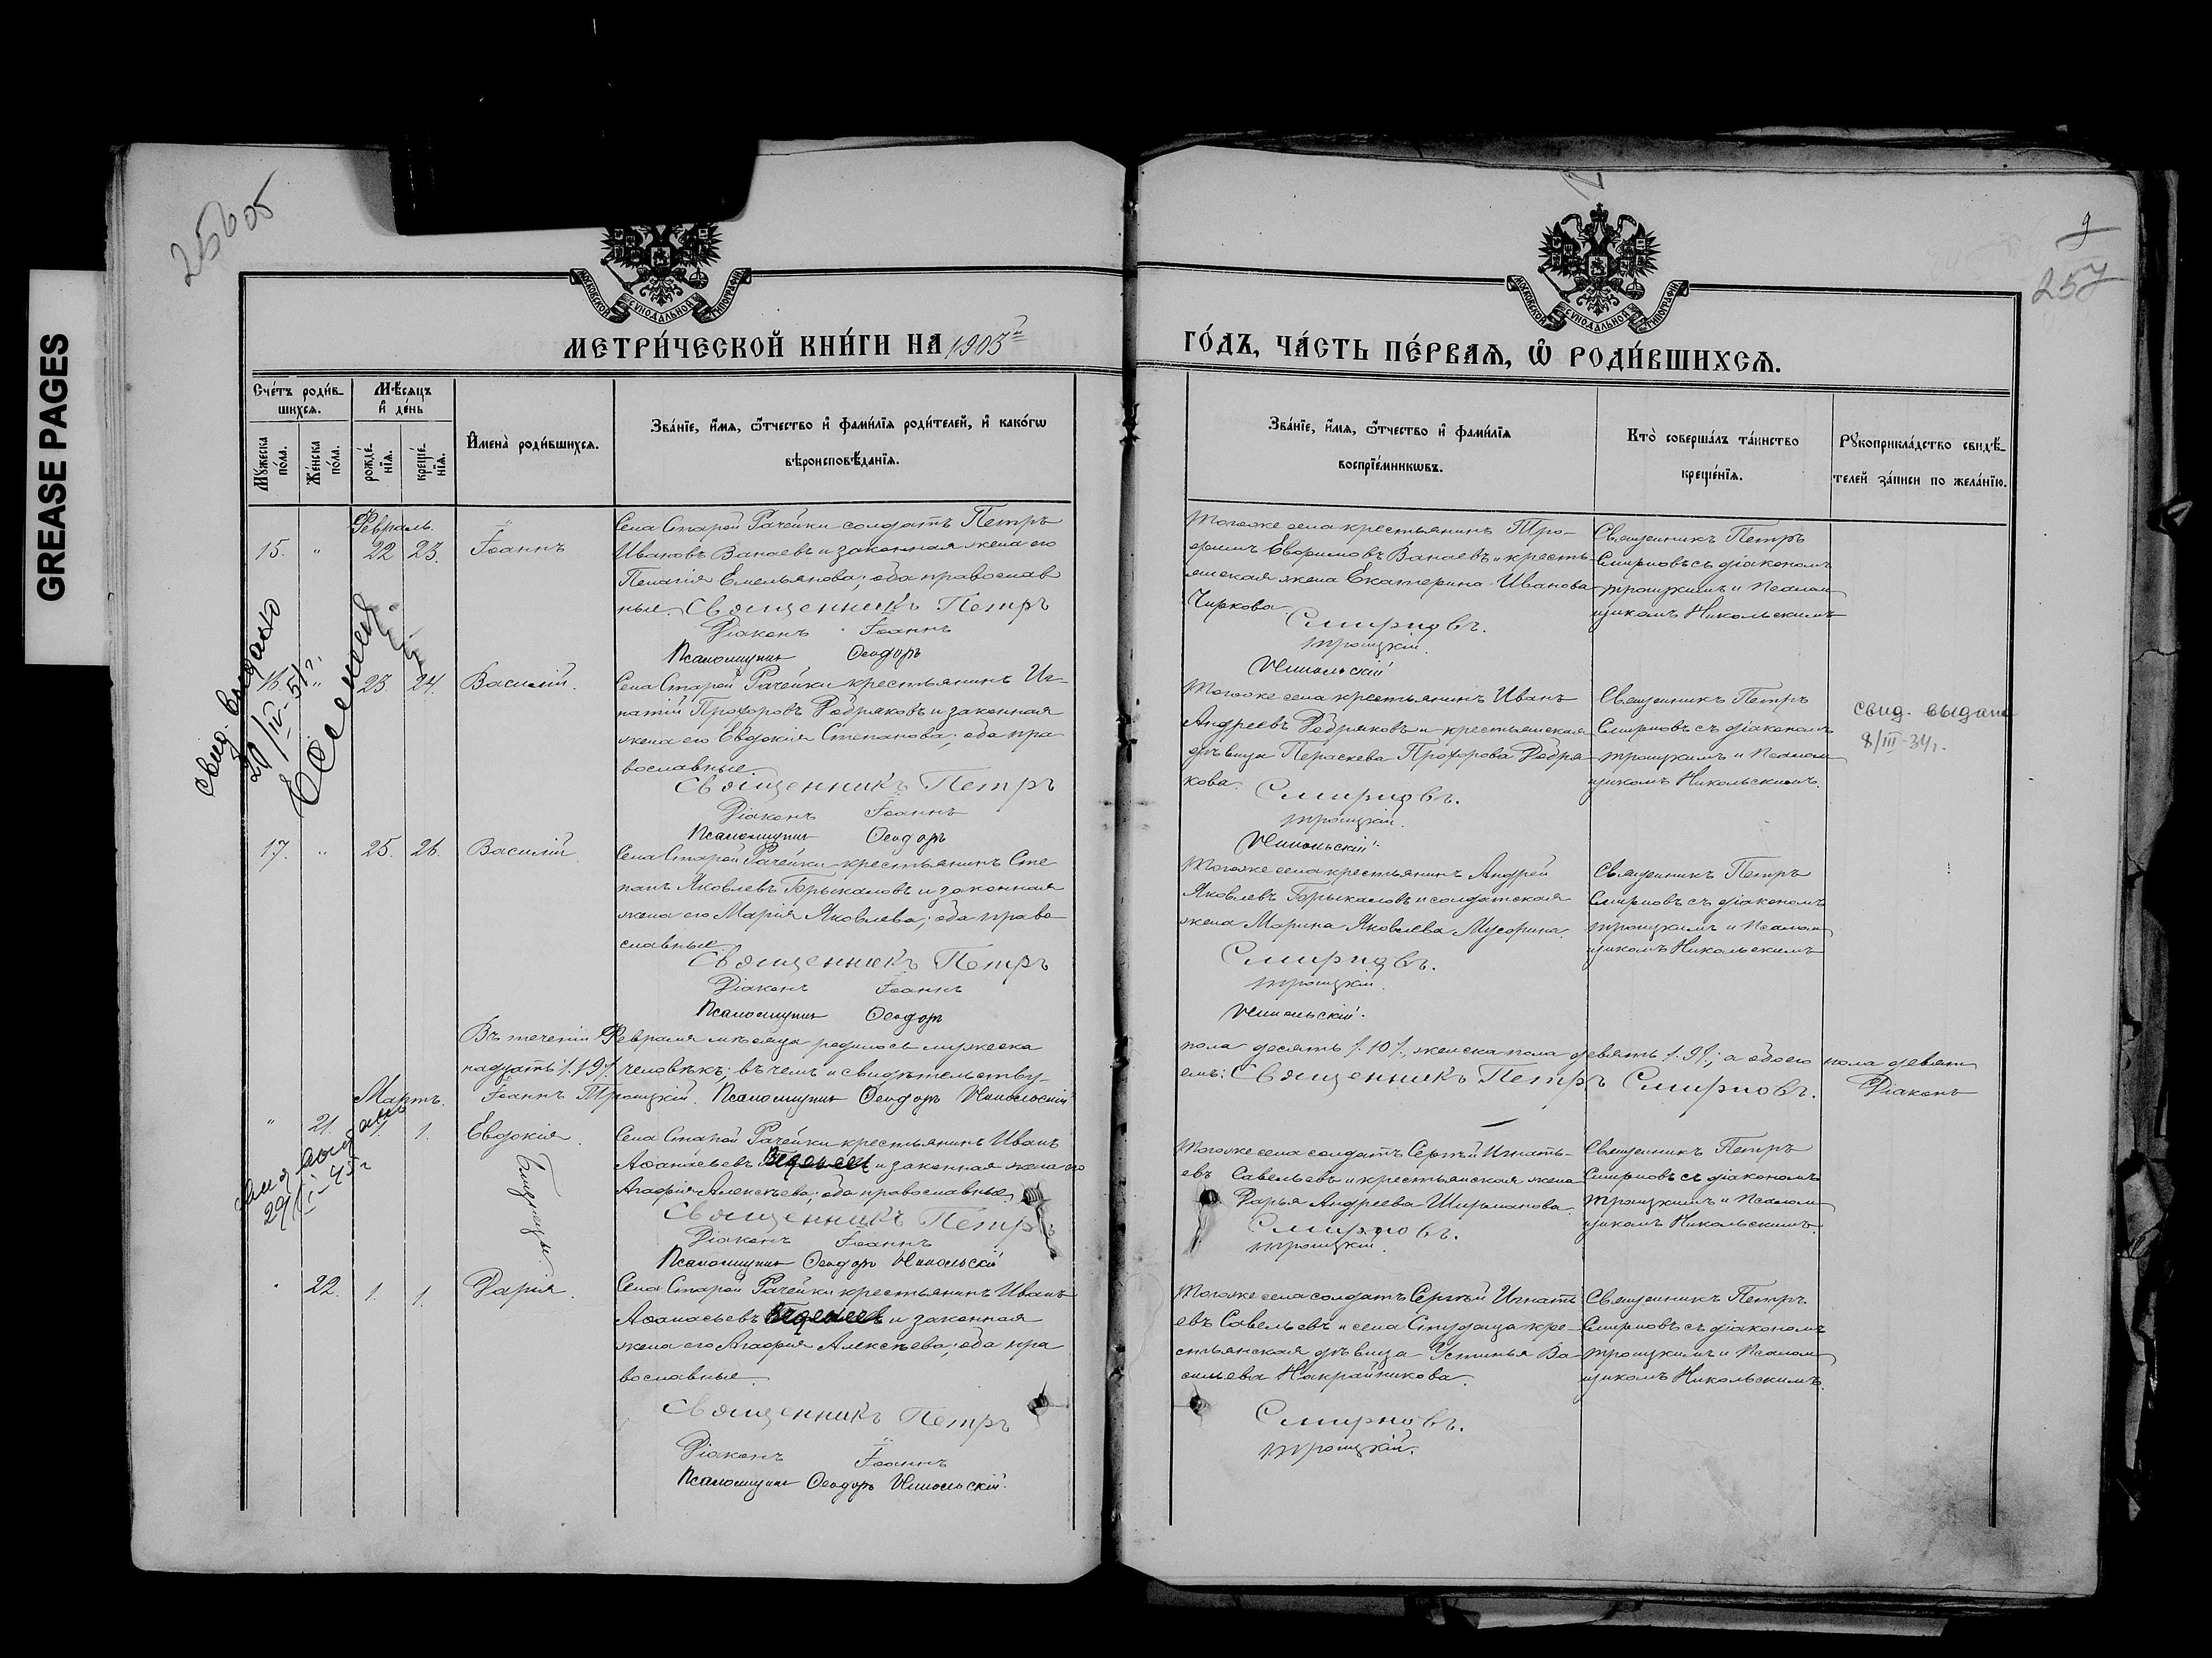 GREASE PAGES
256об
9
257
МОСКОВСКОЙ СѴНОДАЛЬНОЙ ТИПОГРАФІИ
МОСКОВСКОЙ СѴНОДАЛЬНОЙ ТИПОГРАФІИ
МЕТРИ́ЧЕСКОЙ КНИ́ГИ НА 1905й
ГО́ДЪ, ЧА́СТЬ ПЕ́РВАѦ, Ѿ РОДИ́ВШИХСѦ.
Сче́тъ роди́в-
шихсѧ.
Мѣ́сѧцъ
и҆ де́нь
Мꙋ́жеска по́ла.
Же́нска по́ла.
рожде́-
нїѧ.
креще́-
нїѧ.
И҆мена̀ роди́вшихсѧ.
Зва́нїе, и҆́мѧ, ѻ҆́тчество и҆ фами́лїѧ роди́телей, и҆ како́гѡ
вѣроисповѣ́данїѧ.
Зва́нїе, и҆́мѧ, ѻ҆́тчество и҆ фами́лїѧ
воспрїе́мникѡвъ.
Кто̀ соверша́лъ та́инство
креще́нїѧ.
Рꙋкоприкла́дство свидѣ́-
телей за́писи по жела́нїю.
Февраль.
15. " 22 23. Іоаннъ
Села Старой Рачейки солдатъ Петръ
Ивановъ Ванаевъ и законная жена его
Пелагія Емельянова; оба православ
ные. Священникъ Петръ
Діаконъ Іоаннъ
Псаломщикъ Ѳеодоръ
Тогоже села крестьянинъ Тро-
фимъ Евфимовъ Ванаевъ и кресть
янская жена Екатерина Иванова
Чиркова.
Смирновъ.
Троицкій.
Никольскій
Священникъ Петръ
Смирновъ съ діакономъ
Троицкимъ и Псалом
щикомъ Никольскимъ
свид. выдано
20/IV-51 г.
16. " 23 24. Василій.
Села Старой Рачейки крестьянинъ Иг-
натій Прохоровъ Рябряковъ и законная
жена его Евдокія Степанова; оба пра
вославные
Священникъ Петръ
Діаконъ Іоаннъ
Псаломщикъ Ѳеодоръ
Тогоже села крестьянинъ Иванъ
Андреевъ и крестьянская
дѣвица Параскева Прохорова
кова.
Смирновъ.
Троицкій.
Никольскій
Священникъ Петръ
Смирновъ съ діакономъ
Троицкимъ и Псалом
щикомъ Никольскимъ.
свид. выдано
8/III-34 г.
17. " 25. 26. Василій
Села Старой Рачейки крестьянинъ Сте
панъ Яковлевъ Брыкаловъ и законная
жена его Марія Яковлева; оба право-
славные.
Священникъ Петръ
Діаконъ Іоаннъ
Псаломщикъ Ѳеодоръ
Тогоже села крестьянинъ Андрей
Яковлевъ Брыкаловъ и солдатская
жена Марина Яковлева Мусорина.
Смирновъ.
Троицкій.
Никольскій.
Священникъ Петръ
Смирновъ съ діакономъ
Троицкимъ и Псалом
щикомъ Никольскимъ
Въ теченіи Февраля мѣсяца родилось мужеска пола десять /.10/., женска пола девять /.9/.; а обоего пола девят
надцать /.19/. человѣкъ; въ чемъ и свидѣтельству-
емъ: Священникъ Петръ Смирновъ. Діаконъ
Іоаннъ Троицкій. Псаломщикъ Ѳеодоръ Никольскій
Мартъ.
" 21. 1. 1. Евдокія.
Близнецы.
29/
Села Старой Рачейки крестьянинъ Иванъ
Аѳанасьевъ и законная жена его
Агафія Алексѣева; оба православные.
Священникъ Петръ
Діаконъ Іоаннъ
Псаломщикъ Ѳеодоръ Никольскій
Тогоже села солдатъ Сергѣй Игнать-
евъ Савельевъ и крестьянская жена
Дарья Андреева Ширманова.
Смирновъ.
Троицкій.
Священникъ Петръ
Смирновъ съ діакономъ
Троицкимъ и Псалом
щикомъ Никольскимъ.
" 22. 1. 1. Дарія.
Села Старой Рачейки крестьянинъ Иванъ
Аѳанасьевъ и законная
жена его Агафія Алексѣева; оба пра
вославные.
Священникъ Петръ
Діаконъ Іоаннъ
Псаломщикъ Ѳеодоръ Никольскій.
Тогоже села солдатъ Сергѣй Игнать
евъ Савельевъ и села Студенца кре-
стьянская дѣвица Устинья Ва-
сильева Накрайникова.
Смирновъ.
Троицкій.
Священникъ Петръ
Смирновъ съ діакономъ
Троицкимъ и Псалом
щикомъ Никольскимъ.